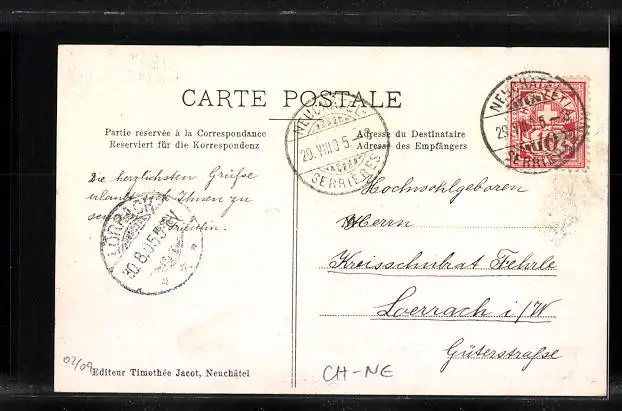 CARTE POSTALE
Partie réservée à la Correspondance
Reserviert für die Korrespondenz
Adresse du Destinataire
Adresse des Empfängers
NEUCHATEL
29.VIII.05.
SERRIÈRES
NEUCHATEL
29.VIII.05.
SERRIÈRES
10
Die herzlichsten Grüße
erlaubt sich Ihnen zu
LÖRRACH
30.8.05.
Hochwohlgeboren
Herrn
Kreisschulrat Fehrle
Loerrach i/W
Güterstraße
02/09
Editeur Timothée Jacot, Neuchâtel
CH-NE